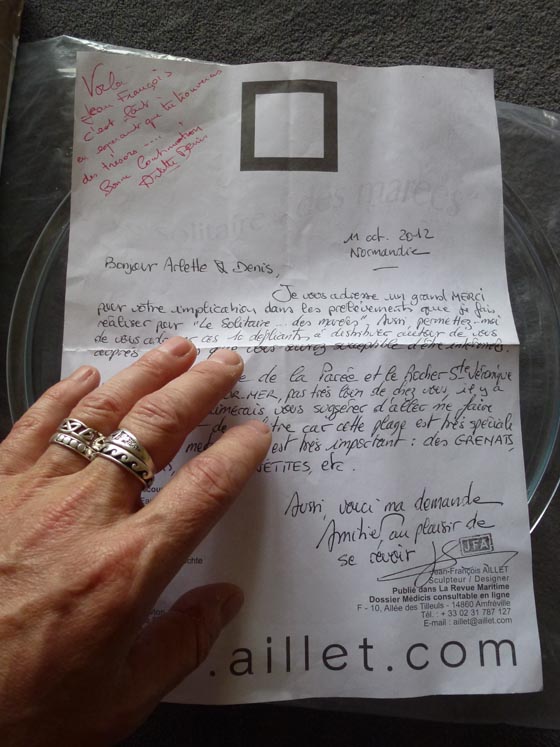 Voilà
Jean François
c'est fait !
en espérant que tu trouveras
des trésors ....
Bonne continuation
Arlette Denis
Solitaire des marées
11 oct. 2012
Normandie
Bonjour Arlette & Denis,
Je vous adresse un grand MERCI
pour votre implication dans les prélèvements que je fais
réaliser pour "Le Solitaire... des marées". Aussi, permettez-moi
de vous ces 10 dépliants à distribuer autour de vous
auprès que vous susceptible d'être intéressés.
de la Pacée et le Rocher Ste Véronique
MER, pas très loin de chez vous, il y a
aimerais vous suggérer d'aller me faire
car cette plage est très spéciale
est très important : des GRENATS,
NETITES, etc.
Aussi, voici ma demande
Amitiés, au plaisir de
se revoir
JFA
Jean-François AILLET
Sculpteur / Designer
Publié dans La Revue Maritime
Dossier Médicis consultable en ligne
F - 10, Allée des Tilleuls - 14860 Amfréville
Tél. : + 33 02 31 787 127
E-mail : aillet@aillet.com
.aillet.com